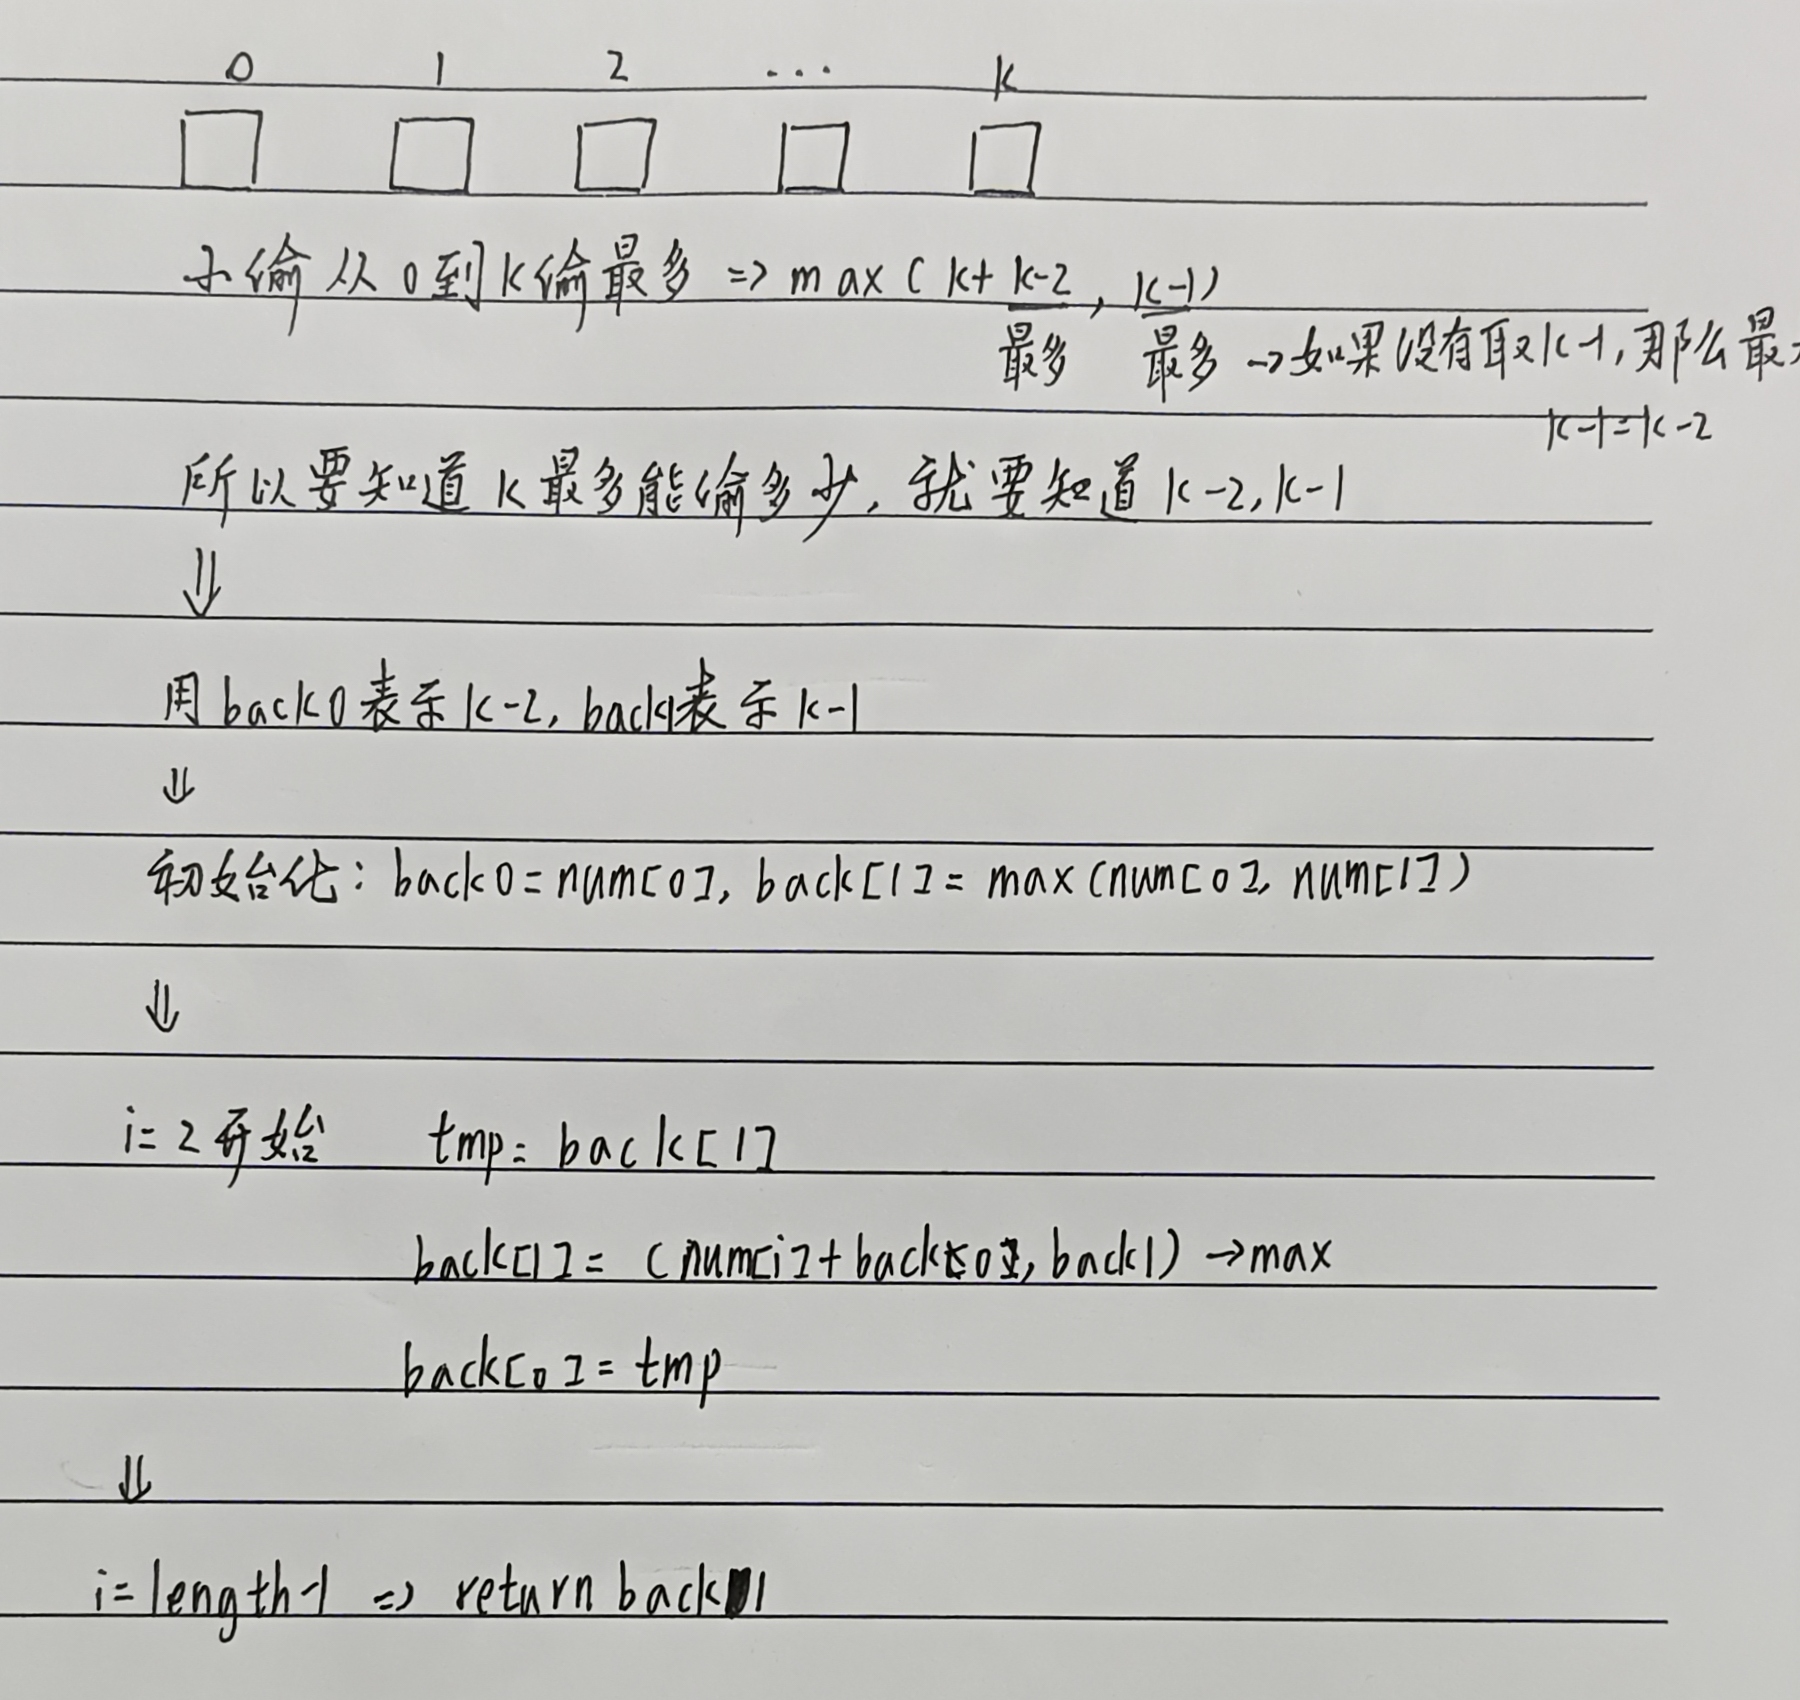 0 1 2 ... k
小偷从0到k偷最多 => max ( k+k-2 , k-1)
最多 最多 → 如果没有取k-1, 那么最
k-1=k-2
所以要知道k最多能偷多少, 就要知道k-2, k-1
⇓
用back0表示k-2, back1表示k-1
⇓
初始化: back0=num[0], back[1]= max(num[0], num[1])
⇓
i=2开始 tmp= back[1]
back[1]= (num[i]+back[0], back1) → max
back[0]=tmp
⇓
i=length-1 => return back1